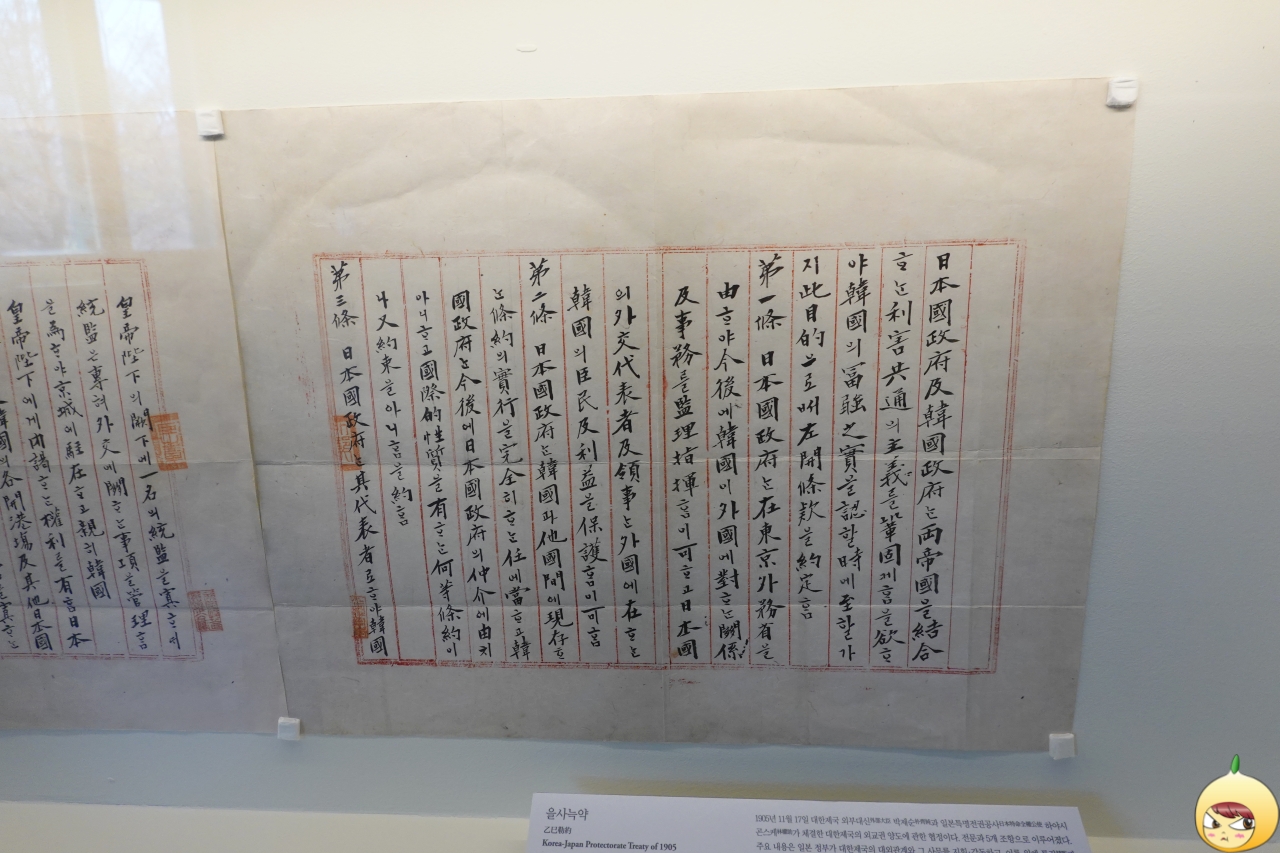 日本國政府及韓國政府는兩帝國을結合
ᄒᆞ는利害共通의主義를鞏固케ᄒᆞᆷ을欲ᄒᆞ
야韓國의富强之實을認할時에至할가
지此目的으로ᄡᅥ左開條款을約定ᄒᆞᆷ
第一條 日本國政府는在東京外務省을
由ᄒᆞ야今後에韓國이外國에對ᄒᆞ는關係
及事務를監理指揮ᄒᆞᆷ이可ᄒᆞ고日本國
의外交代表者及領事는外國에在ᄒᆞ는
韓國의臣民及利益을保護ᄒᆞᆷ이可ᄒᆞᆷ
第二條 日本國政府는韓國과他國間에現存ᄒᆞ
는條約의實行을完全히ᄒᆞ는任에當ᄒᆞ고韓
國政府는今後에日本國政府의仲介에由치
아니ᄒᆞ고國際的性質을有ᄒᆞ는何等條約이
나又約束을아니ᄒᆞᆷ을約ᄒᆞᆷ
第三條 日本國政府는其代表者로ᄒᆞ야韓國
皇帝陛下의闕下에一名의統監을寘ᄒᆞ며
統監은專혀外交에關ᄒᆞ는事項을管理ᄒᆞᆷ
을爲ᄒᆞ야京城에駐在ᄒᆞ고親히韓國
皇帝陛下에게內謁ᄒᆞ는權利를有ᄒᆞᆷ日本
韓國의各開港場及其他日本國
을사늑약
乙巳勒約
Korea-Japan Protectorate Treaty of 1905
1905년 11월 17일 대한제국 외부대신外部大臣 박제순朴齊純과 일본특명전권공사日本特命全權公使 하야시
곤스케林權助가 체결한 대한제국의 외교권 양도에 관한 협정이다. 전문과 5개 조항으로 이루어졌다.
주요 내용은 일본 정부가 대한제국의 대외관계와 그 사무를